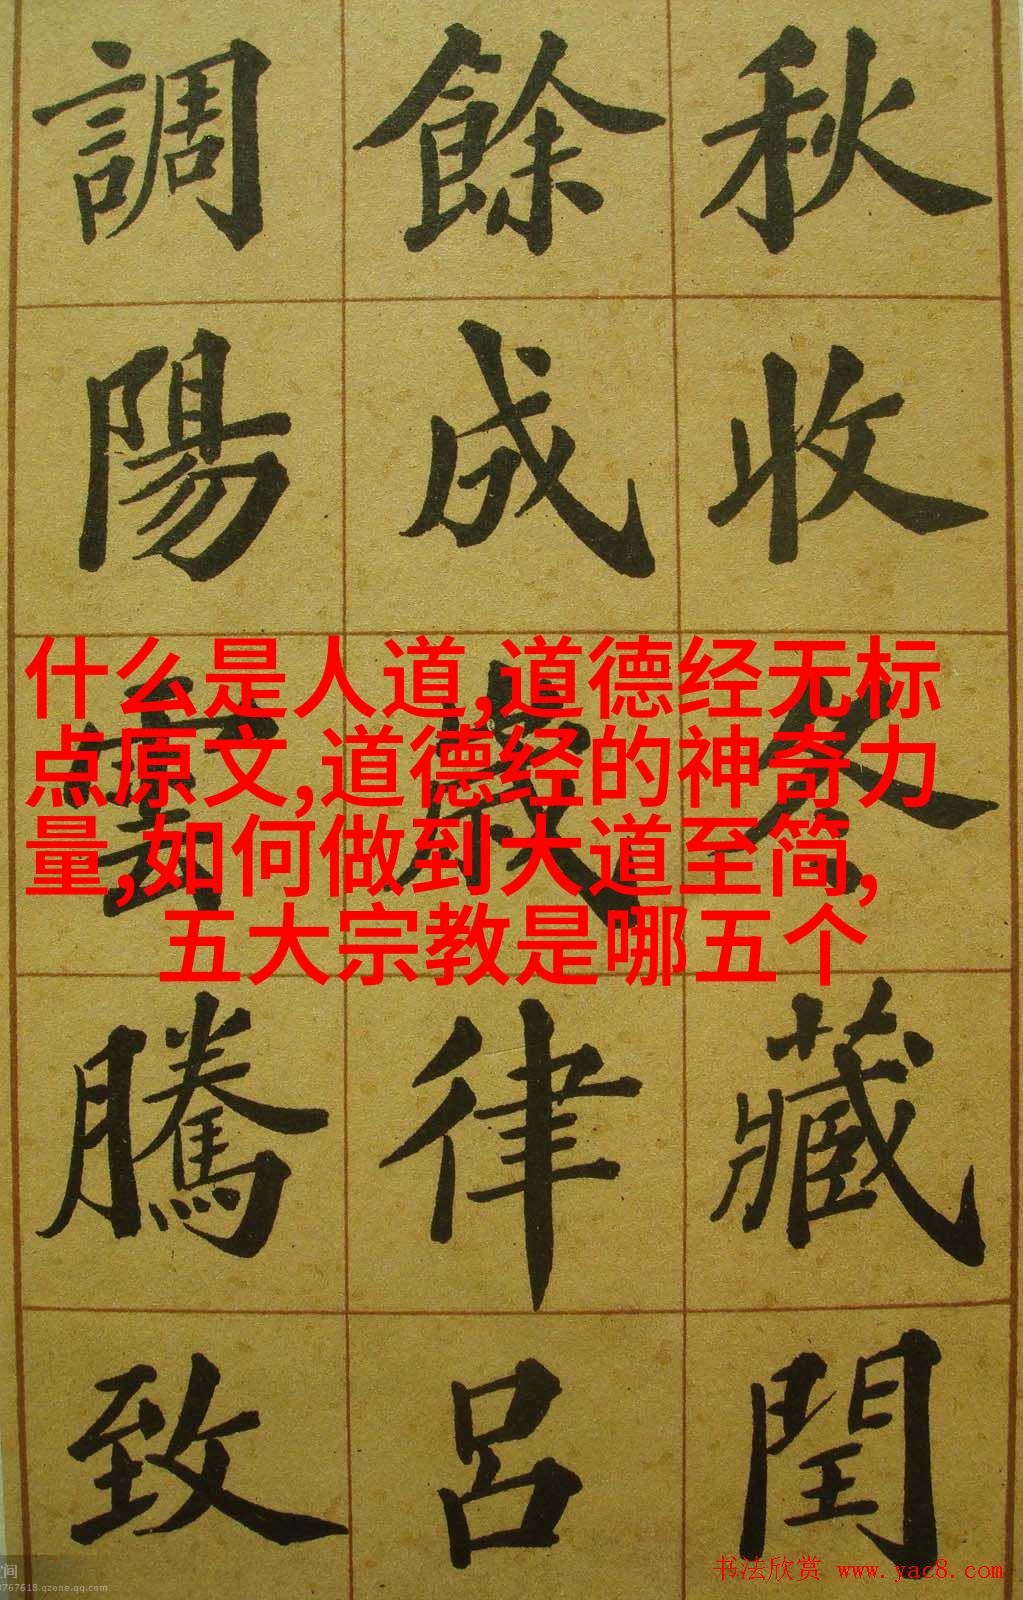 秋收冬藏閏
餘成歲律呂
調陽雲騰致
什么是人道,道德经无标
点原文,道德经的神奇力
量,如何做到大道至简,
五大宗教是哪五个
书法欣赏 www.yac8.com
767618.qzone.qq.com